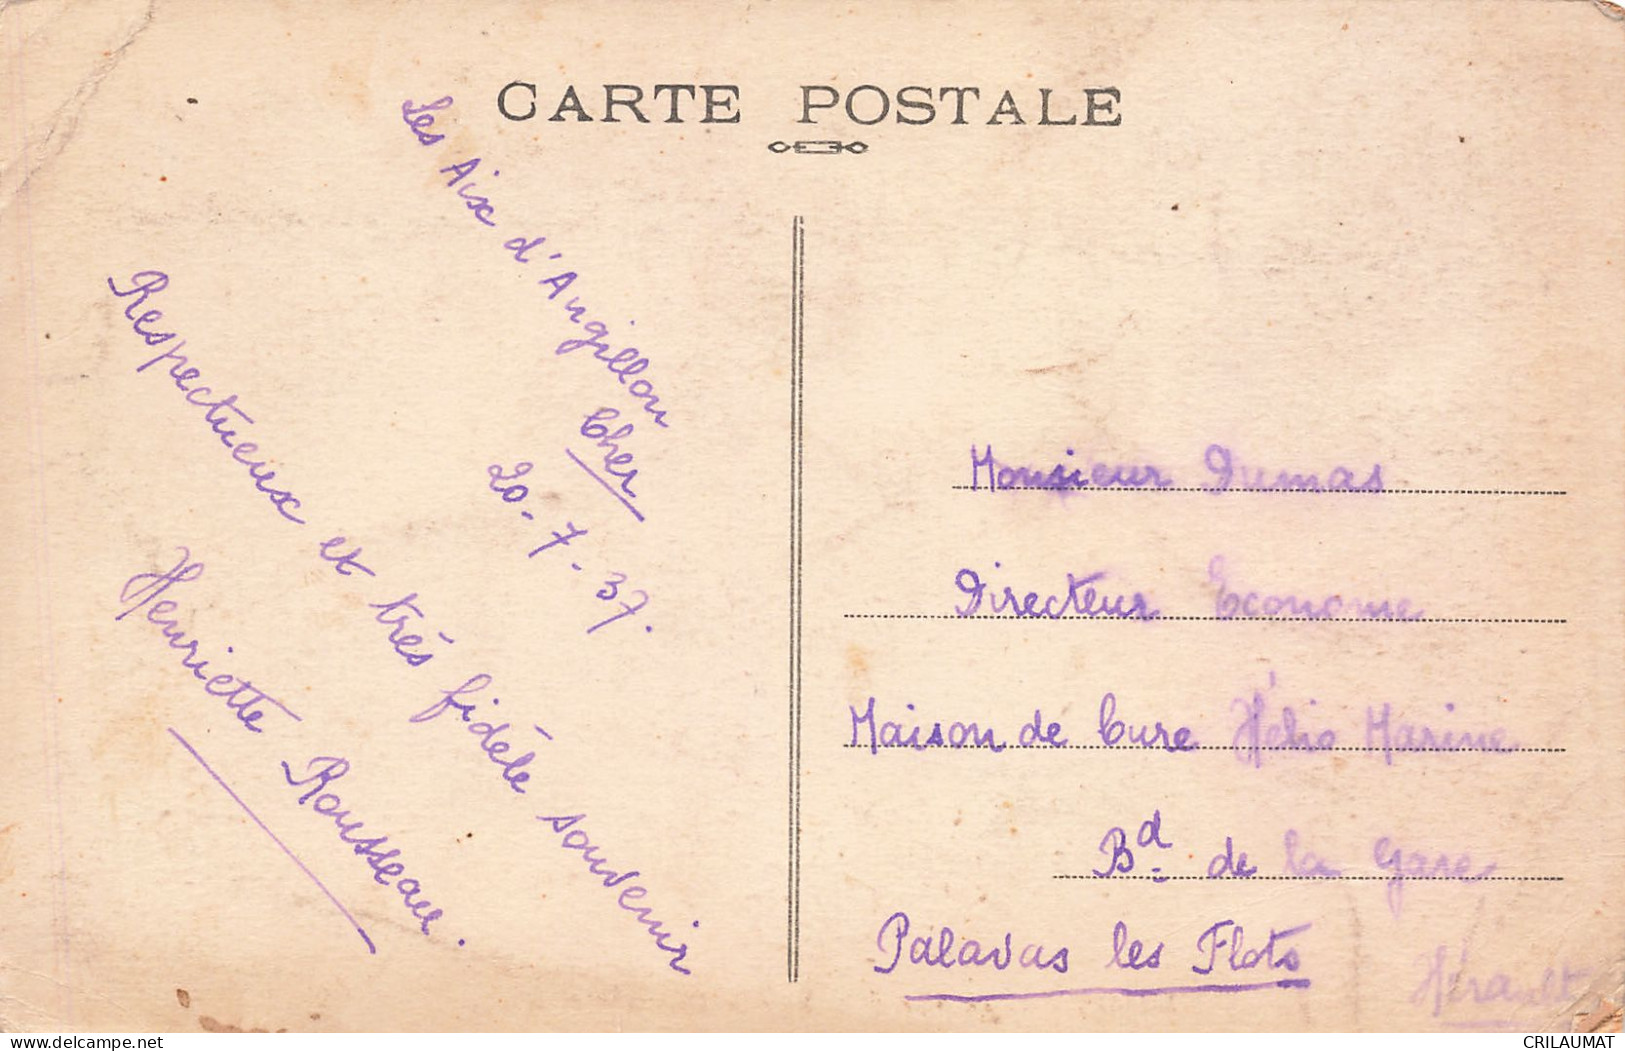 CARTE POSTALE
Les Aix d'Angillon
Cher
20-7-37.
Respectueux et très fidèle souvenir
Henriette Rousseau.
Monsieur Dumas
Directeur Econome
Maison de Cure Hélio Marine
Bd de la Gare
Palavas les Flots
Hérault
www.delcampe.net
CRILAUMAT